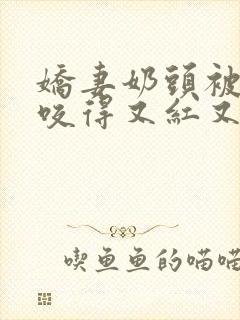 嬌妻奶頭被
咬得又紅又
喫魚魚的喵喵